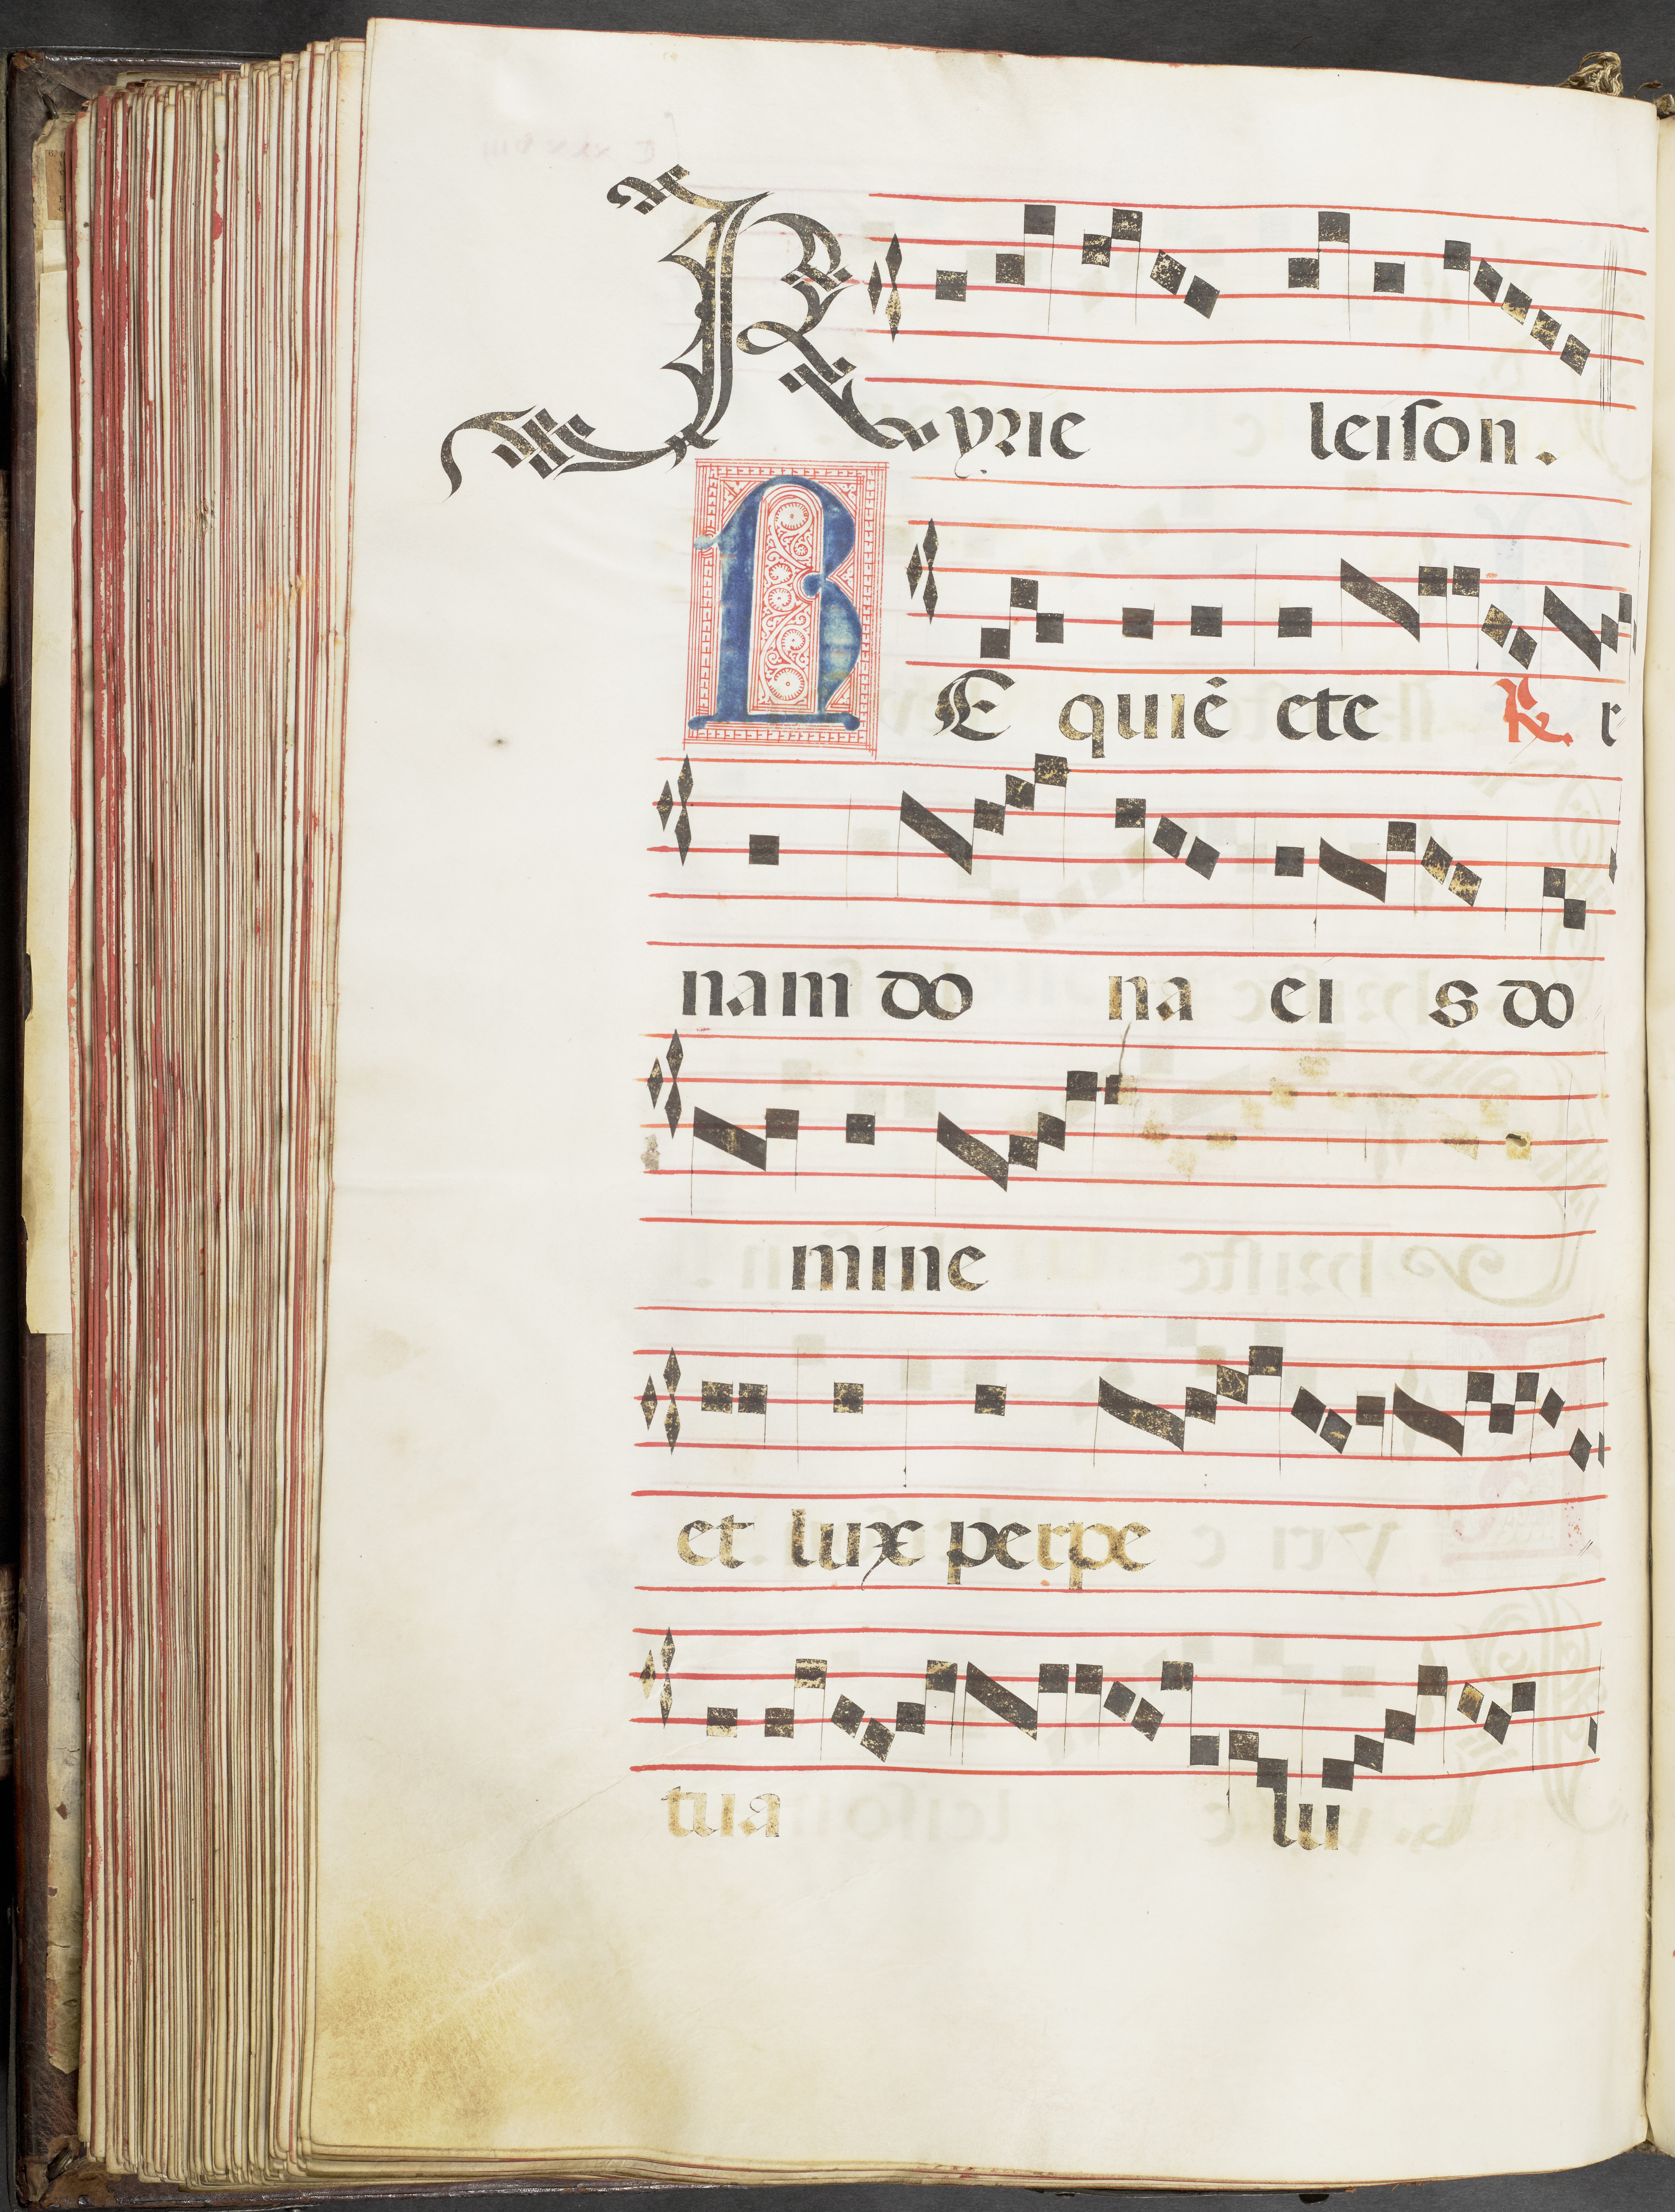 Kyrie leiſon.
RE quiē ete ℟ r
nam do na ei s do
mine
et lux perpe
tua lu